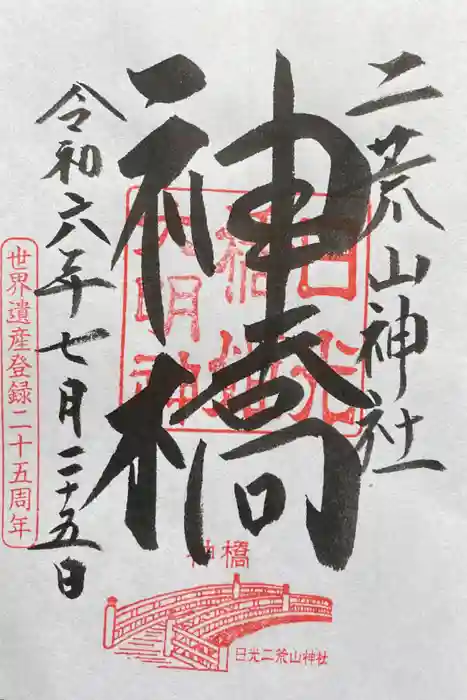 二荒山神社
神橋
令和六年七月二十五日
世界遺産登録二十五周年
日光
橋姫
大明神
神橋
日光二荒山神社